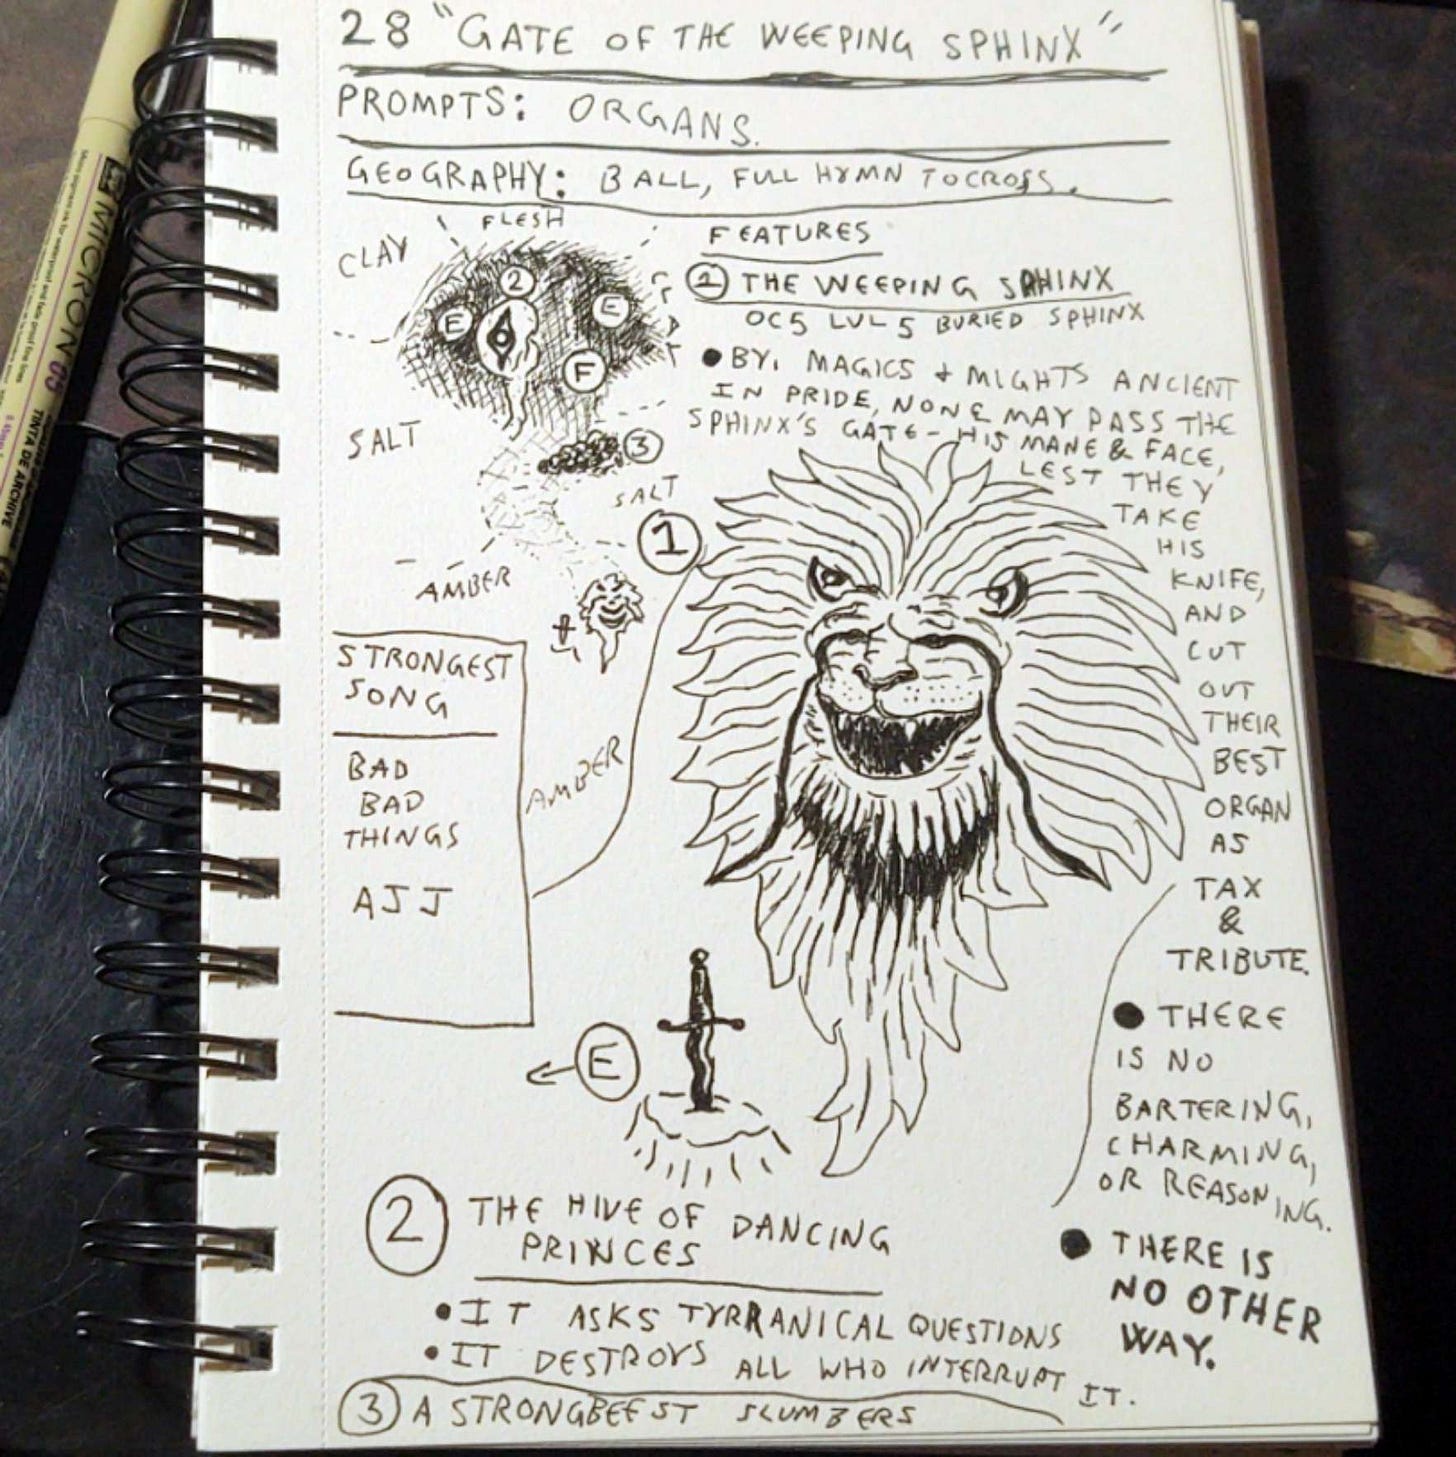 28 "GATE OF THE WEEPING SPHINX"
PROMPTS: ORGANS.
GEOGRAPHY: BALL, FULL HYMN TO CROSS.
FLESH
CLAY
2
E
E
F
SALT
3
SALT
AMBER
1
AMBER
FEATURES
1 THE WEEPING SPHINX
OC5 LVL 5 BURIED SPHINX
• BY, MAGICS & MIGHTS ANCIENT
IN PRIDE, NONE MAY PASS THE
SPHINX'S GATE - HIS MANE & FACE,
LEST THEY
TAKE
HIS
KNIFE,
AND
CUT
OUT
THEIR
BEST
ORGAN
AS
TAX
&
TRIBUTE.
• THERE
IS NO
BARTERING,
CHARMING,
OR REASONING.
• THERE IS
NO OTHER
WAY.
STRONGEST
SONG
BAD
BAD
THINGS
AJJ
E
2 THE HIVE OF DANCING
PRINCES
• IT ASKS TYRRANICAL QUESTIONS
• IT DESTROYS ALL WHO INTERRUPT IT.
3 A STRONGBEEST SLUMBERS
MICRON 05
TINTA DE ARCHIVE